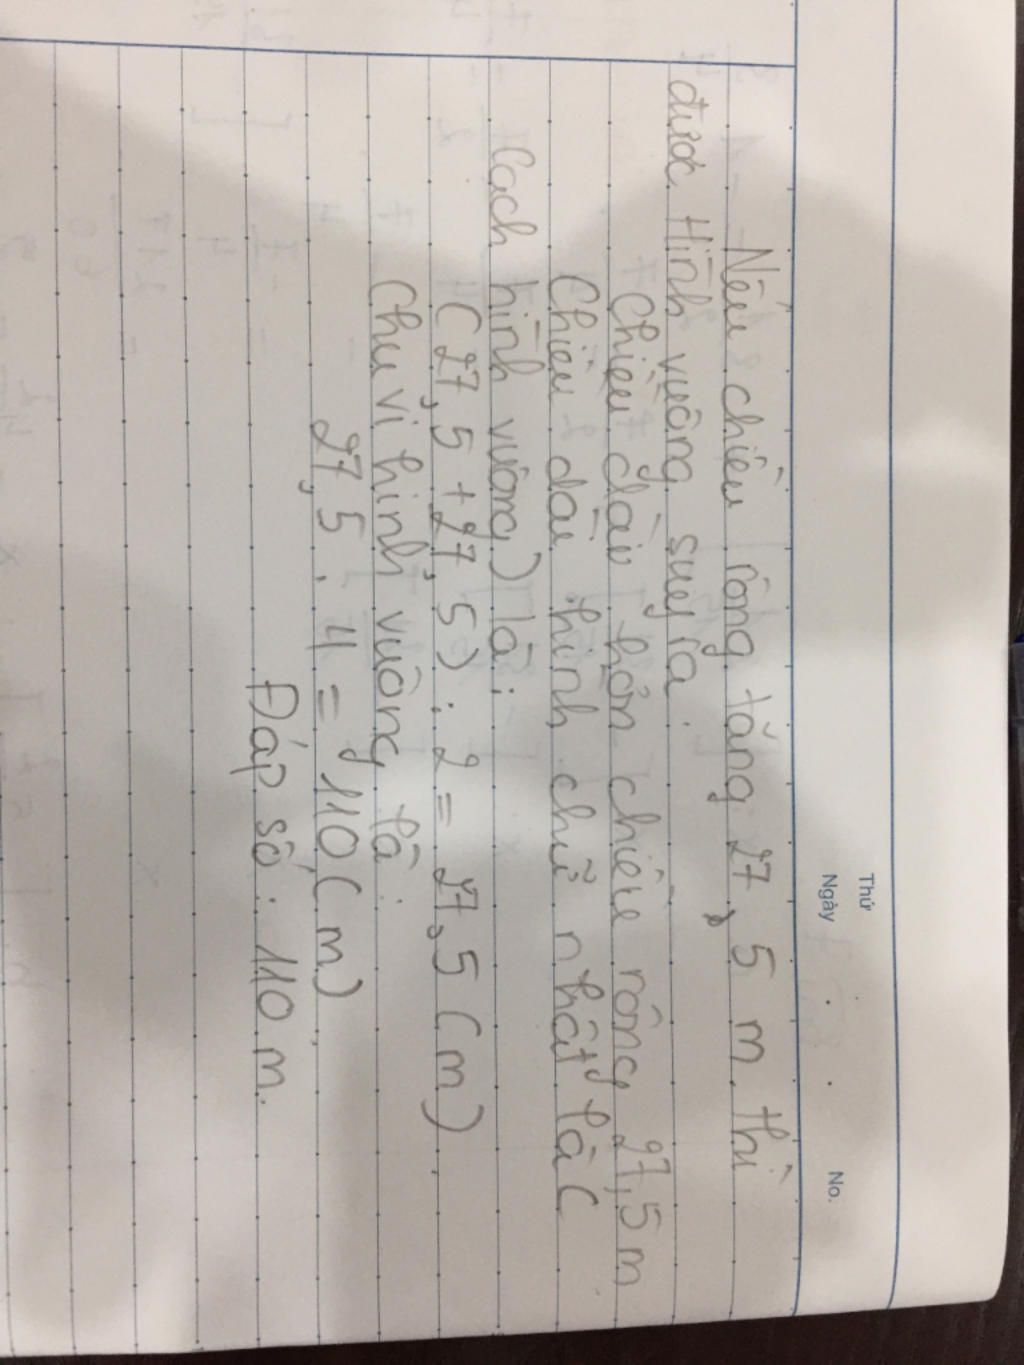 Thứ
Ngày . . No.
Nếu chiều rộng tăng 27,5 m thì
được Hình vuông suy ra:
Chiều dài hơn chiều rộng 27,5m
Chiều dài hình chữ nhật là (
Cạch hình vuông) là:
(27,5 + 27,5) : 2 = 27,5 (m)
Chu vi hình vuông là:
27,5 . 4 = 110 (m)
Đáp số: 110 m.